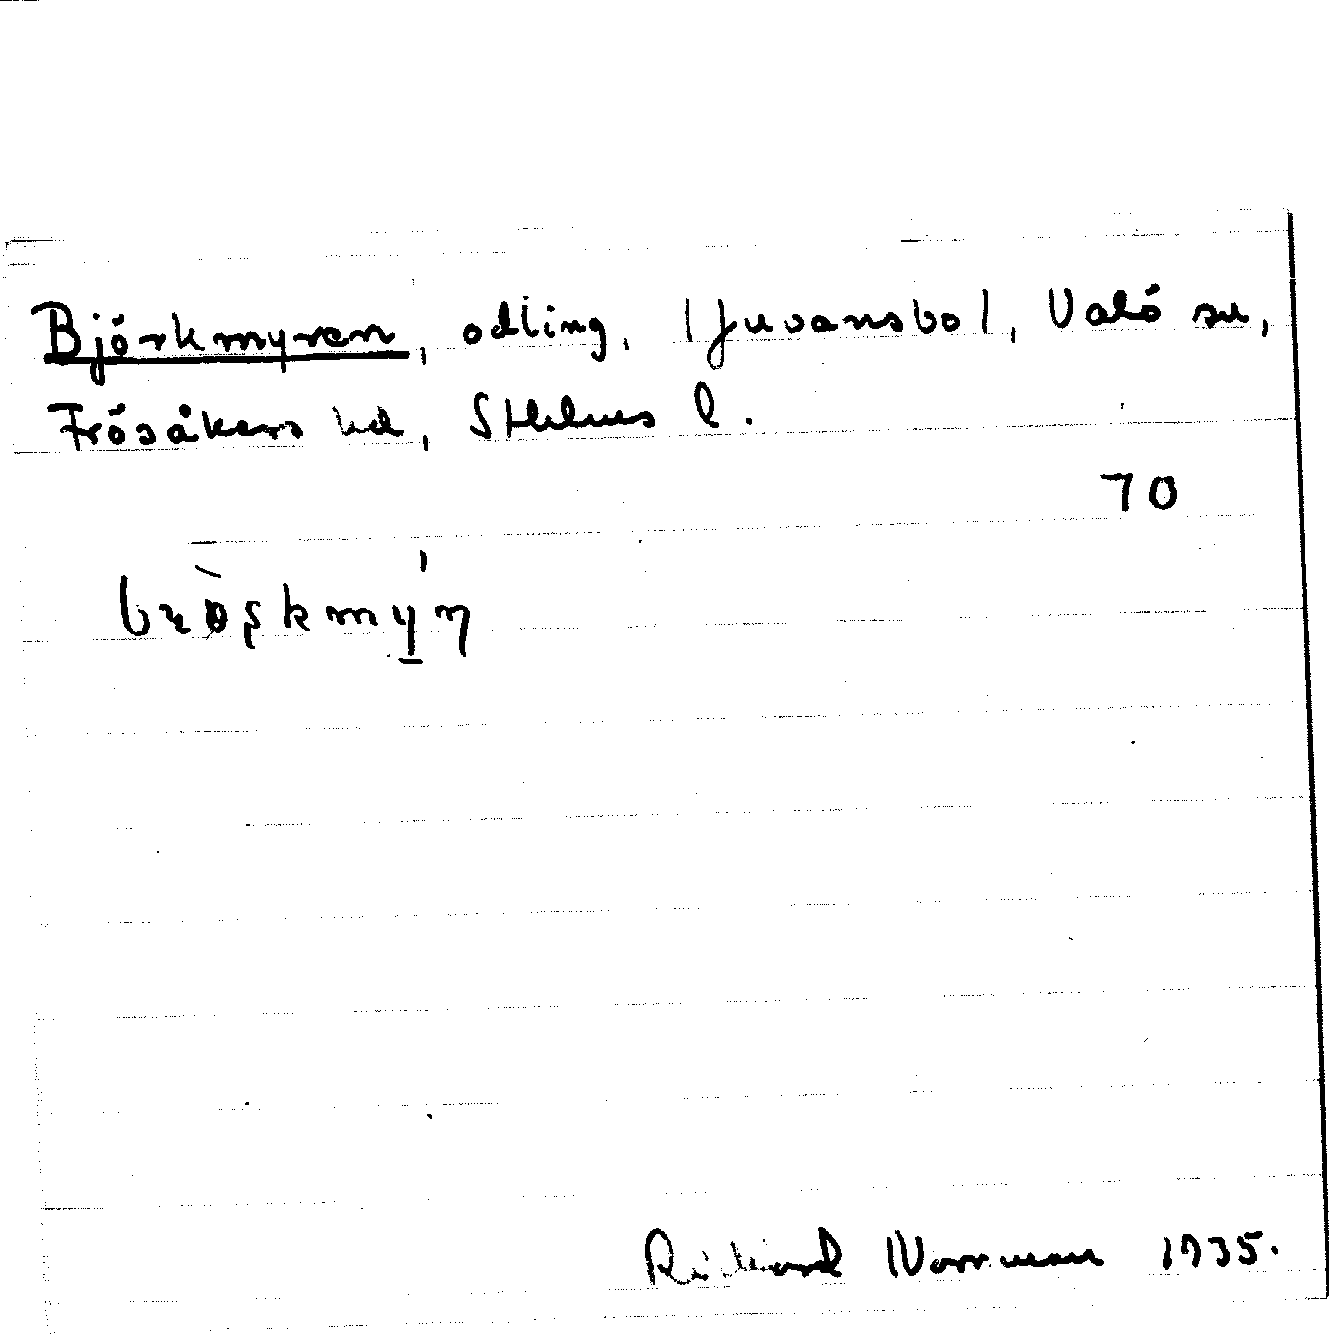 Björkmyren, odling, Ljuvansbol, Valö sn,
Frösåkers hd, Sthlms l.
70
Rickard Norrman 1935.